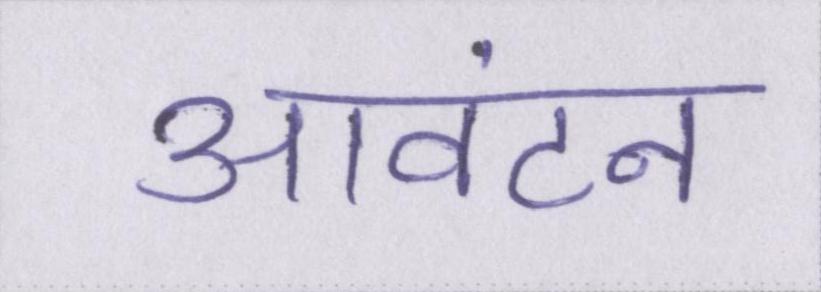 आवंटन